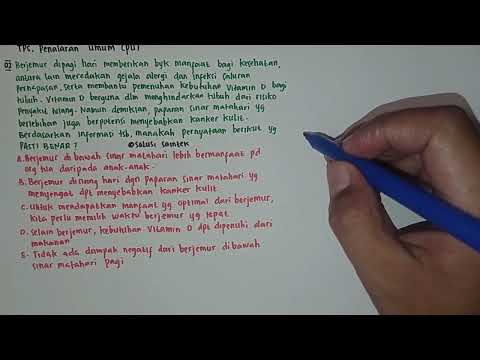 TPS. Penalaran Umum (PU)
07 Berjemur dipagi hari memberikan byk manfaat bagi kesehatan,
antara lain meredakan gejala alergi dan infeksi saluran
pernapasan, serta membantu pemenuhan kebutuhan vitamin D bagi
tubuh. Vitamin D berguna dlm menghindarkan tubuh dari risiko
penyakit tulang. Namun demikian, paparan sinar matahari yg
berlebihan juga berpotensi menyebabkan kanker kulit.
Berdasarkan informasi tsb, manakah pernyataan berikut yg
PASTI BENAR?
@solusi saintek
A. Berjemur dibawah sinar matahari lebih bermanfaat pd
org tua daripada anak-anak.
B. Berjemur disiang hari dgn paparan sinar matahari yg
menyengat dpt menyebabkan kanker kulit
C. Untuk mendapatkan manfaat yg optimal dari berjemur,
kita perlu memilih waktu berjemur yg tepat
D. Selain berjemur, kebutuhan vitamin D dpt dipenuhi dari
makanan
E. Tidak ada dampak negatif dari berjemur dibawah
sinar matahari pagi